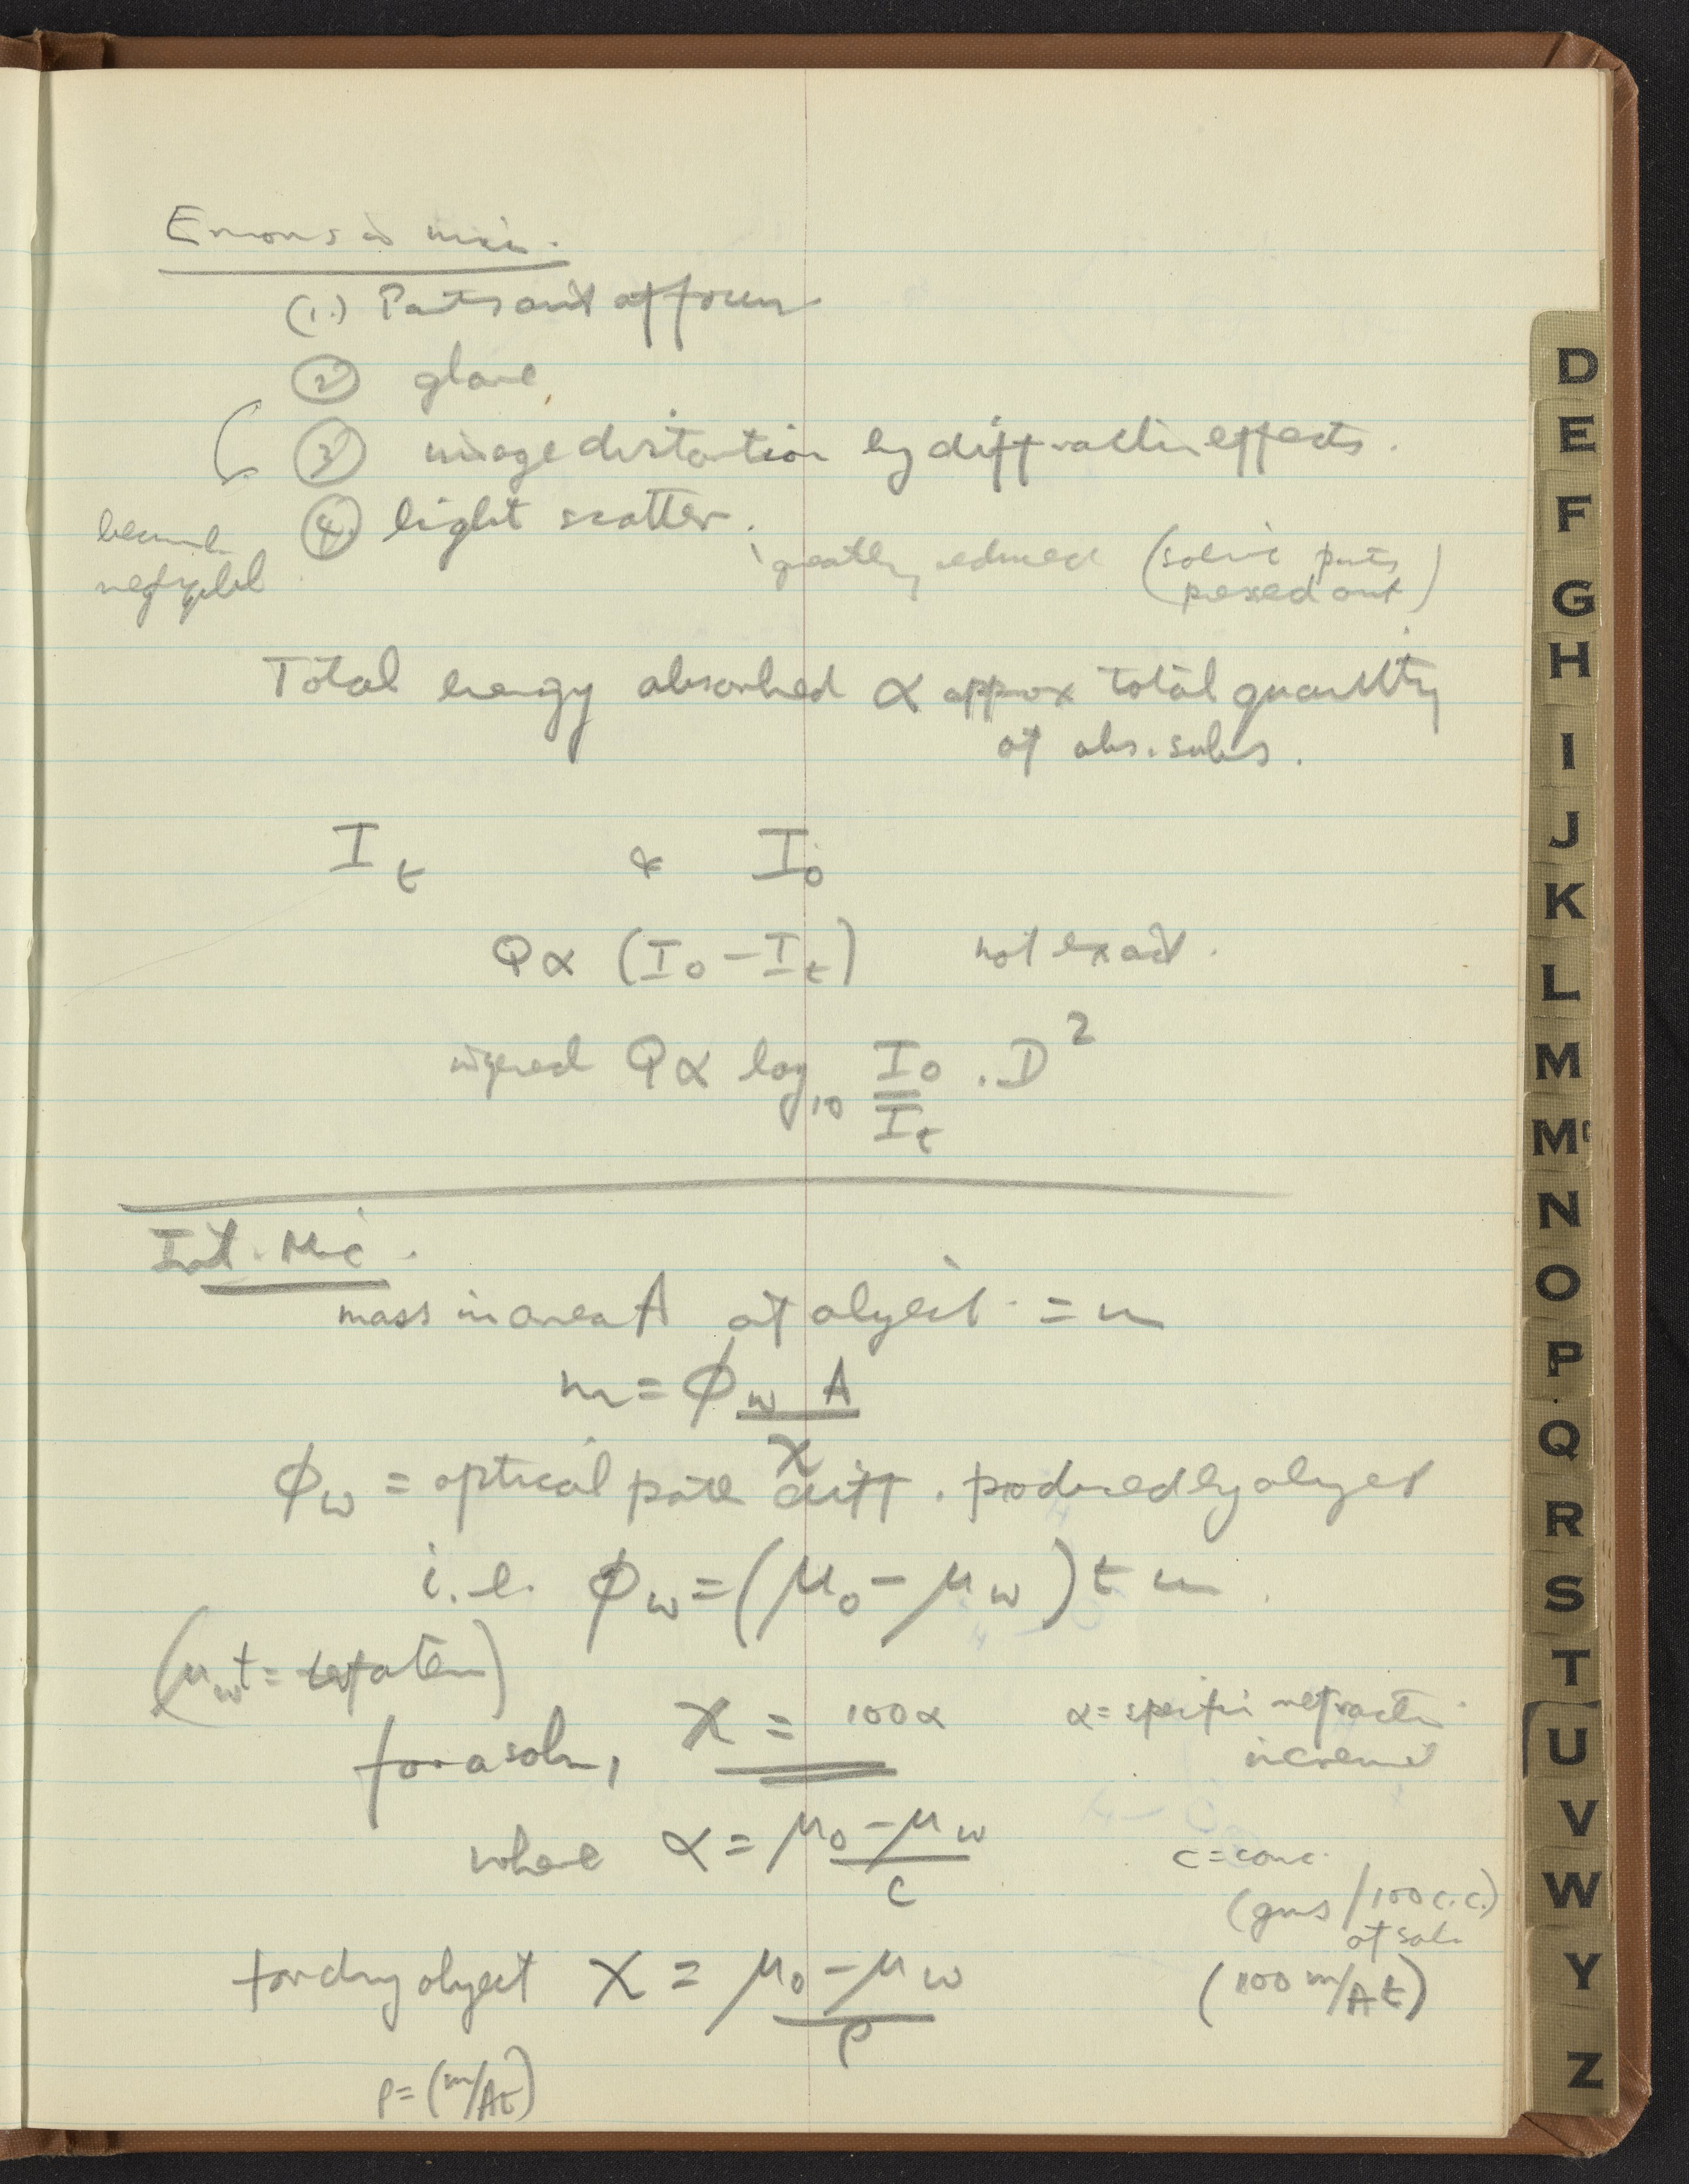 Errors in mic.
(1.) Parts out of focus
(2) glare
(3) image distortion by diffraction effects.
(4.) light scatter.
become
negligibl
greatly reduced (solvic parts
pressed out)
Total energy absorbed ∝ approx total quantity
of abs. subs.
I_t & I_o
Q ∝ (I_o − I_t) not exact.
Q ∝ log_10 I_o/I_t . D^2
Int. Mic.
mass in area A of object = m
m = ϕ_w A / χ
ϕ_w = optical path diff. produced by object
i.e. ϕ_w = (μ_o − μ_w) t
(μ_w t = water)
for a soln, χ = 100α
α = specific refractive
increment
where α = μ_o − μ_w / c
c = conc.
(gms/100 c.c.)
of soln
for dry object χ = μ_o − μ_w / ρ
(100 m/At)
ρ = (m/At)
D
E
F
G
H
I
J
K
L
M
Mc
N
O
P
Q
R
S
T
U
V
W
Y
Z